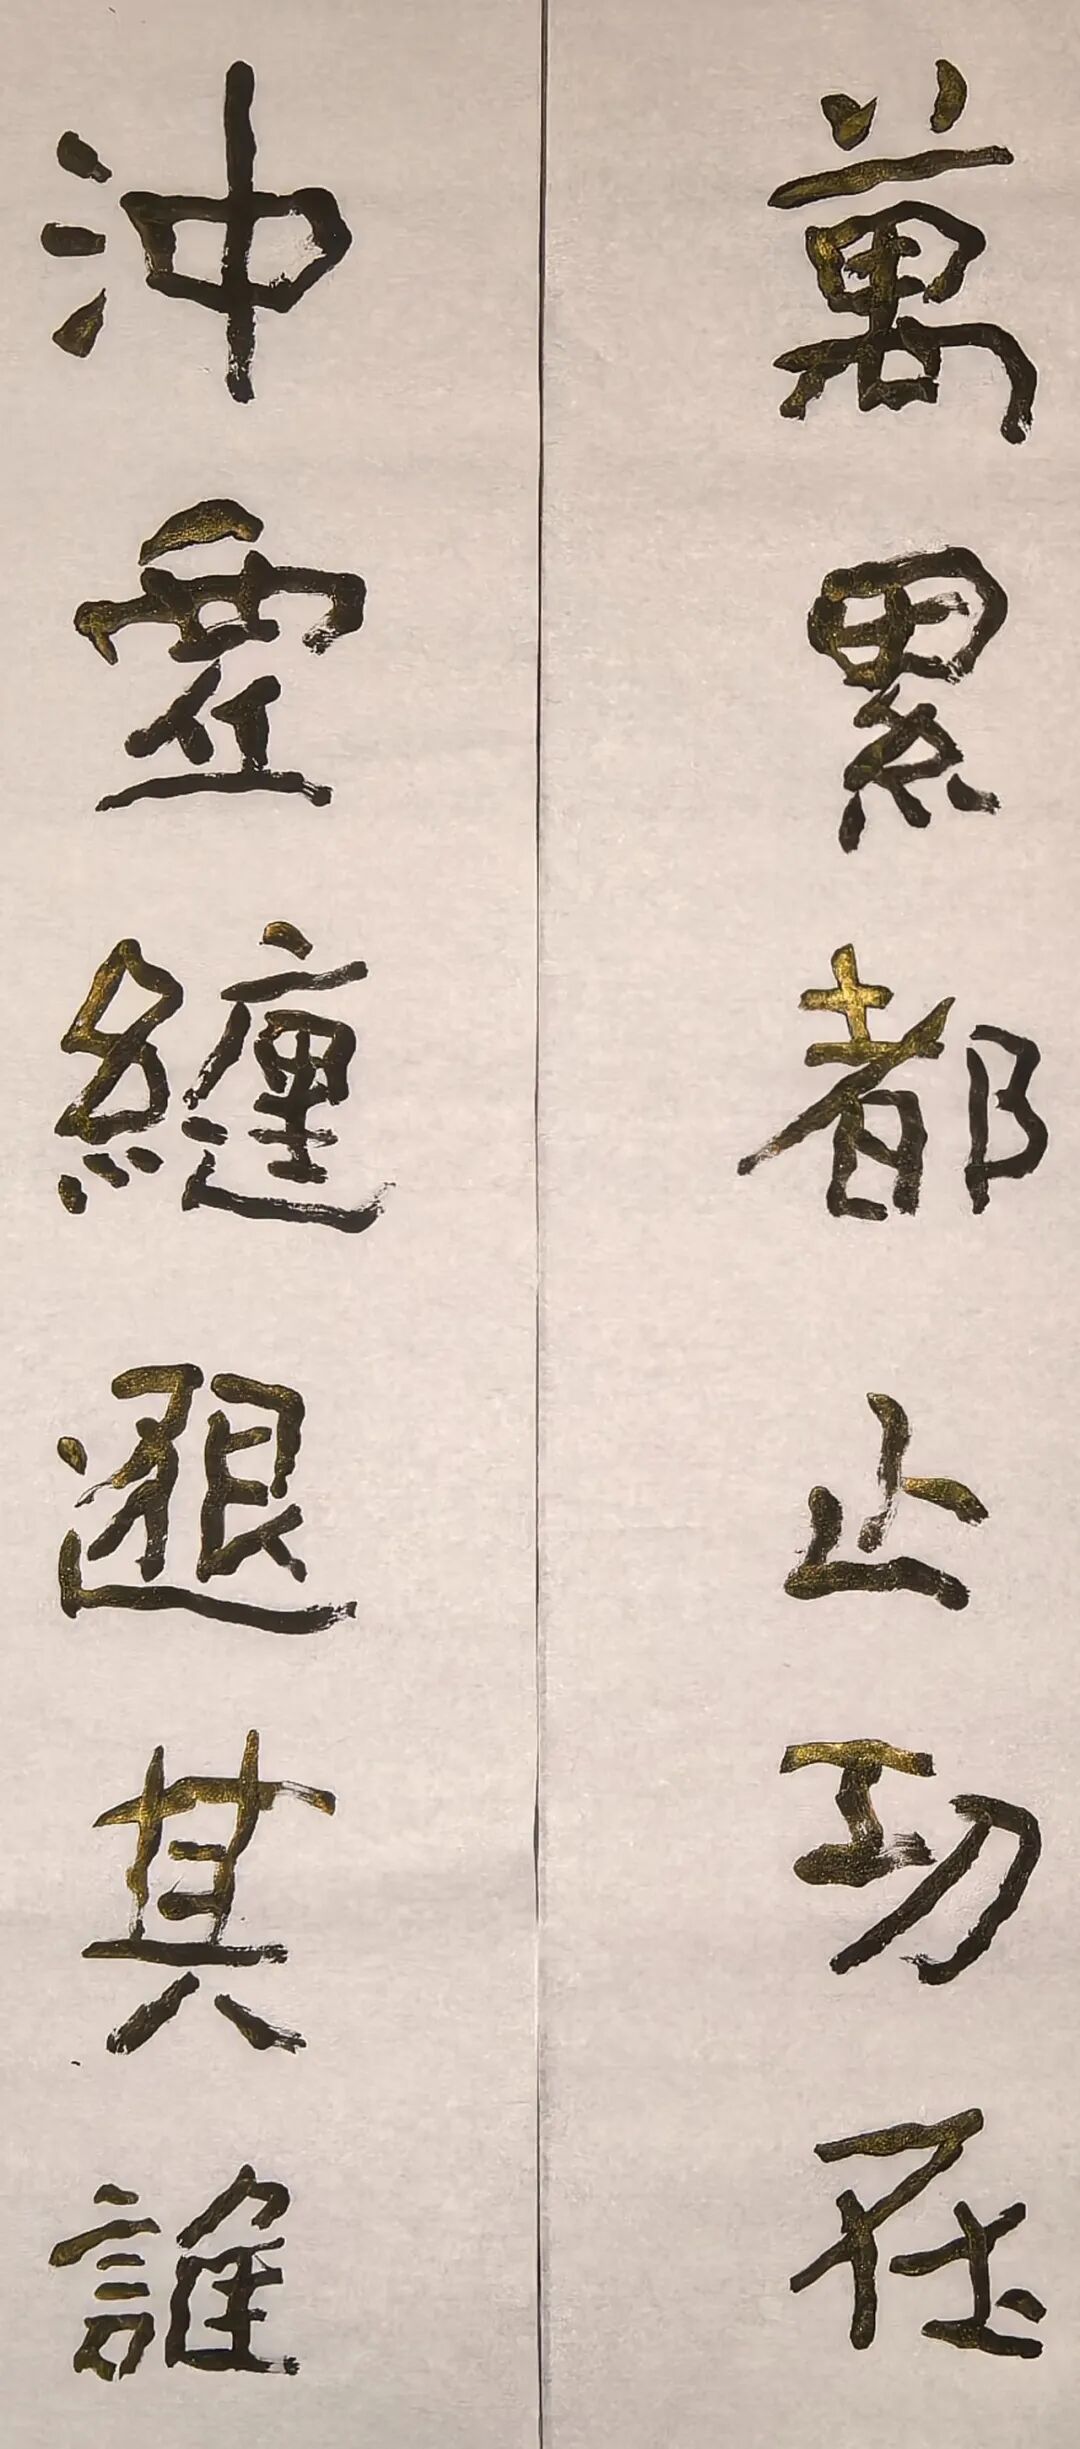 萬累都止功在
沖虛纏退其誰